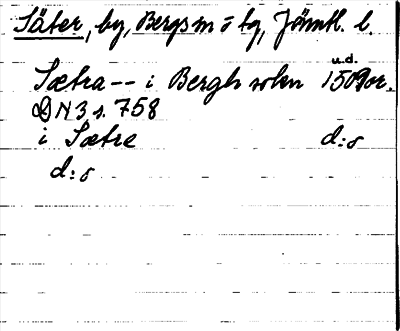 Säter, by, Bergs sn o tg, Jämtl. l.
u.d.
Sætra -- i Bergh sokn 1509 or.
DN 3 s. 758
i Sætre d:o
d:o